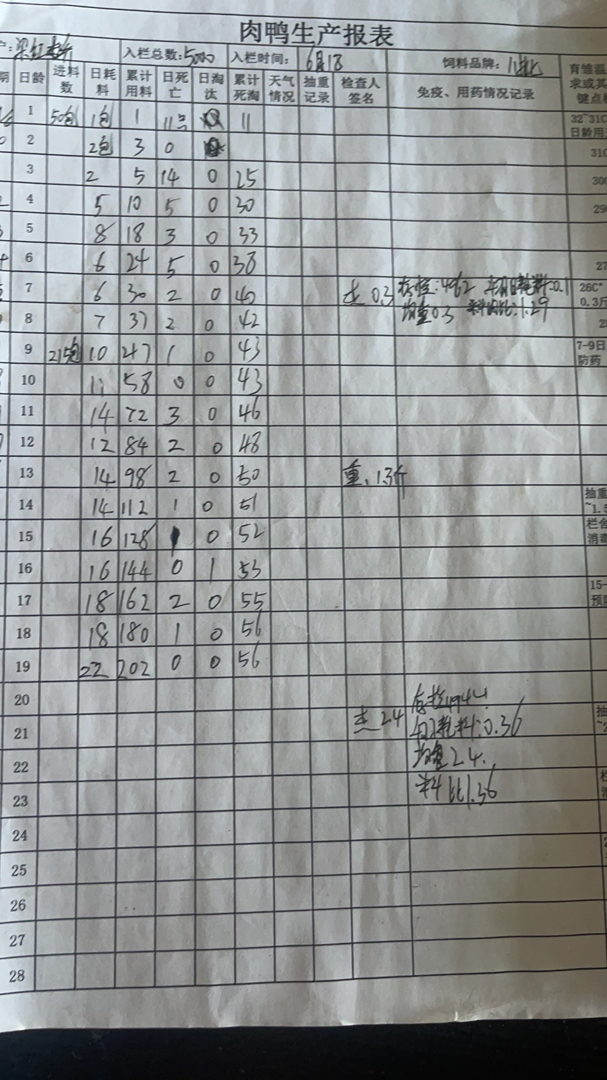 肉鸭生产报表
入栏总数:5000 入栏时间: 6月18 饲料品牌:
日龄 进料数 日耗料 累计用料 日死亡 日淘汰 累计死淘 天气情况 抽重记录 检查人签名 免疫、用药情况记录
1 50包 1包 1 11 11 32~31C
日龄用
2 2包 3 0 31C
3 2 5 14 0 25 30
4 5 10 5 0 30 29
5 8 18 3 0 33
6 6 24 5 0 38 27
7 6 30 2 0 40 0.3 存栏:4962 26C°
均重0.3 料肉比:1.29 0.3斤
8 7 37 2 0 42
9 215包 10 47 1 0 43 7-9日
防药
10 11 58 0 0 43
11 14 72 3 0 46
12 12 84 2 0 48
13 14 98 2 0 50 重:1.3斤
14 14 112 1 0 51 抽重
15 16 128 1 0 52 消毒
16 16 144 0 1 53
17 18 162 2 0 55 15-
18 18 180 1 0 56
19 22 202 0 0 56
20 存栏4944
21 2.4 日耗料:0.36
22 均重2.4
23 料比1.36
24
25
26
27
28